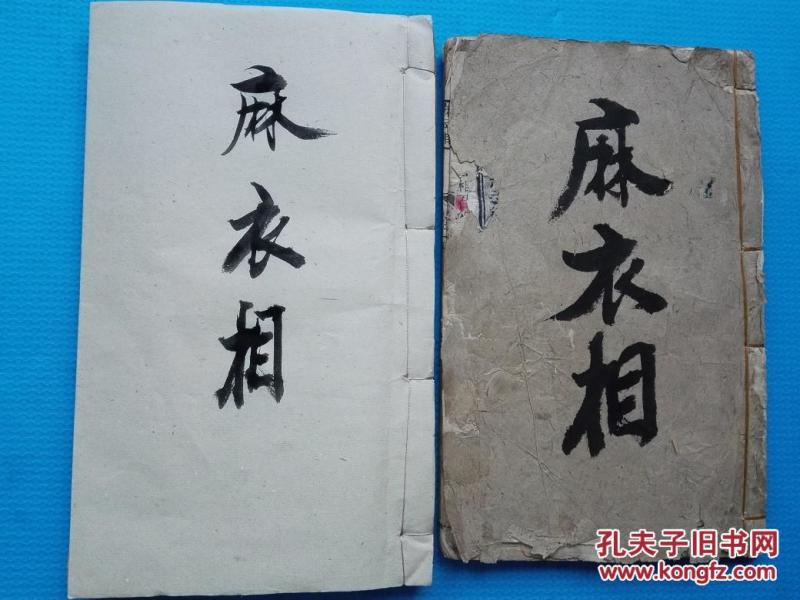 麻衣相
麻衣相
孔夫子旧书网
www.kongfz.com